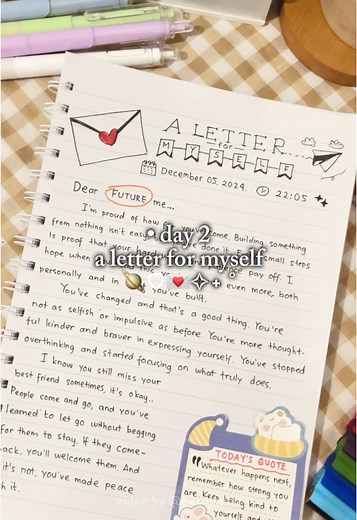 A LETTER
for
MYSELF
December 03, 2024.
22:05
Dear FUTURE me...
• day 2
a letter for myself
I'm proud of how come. Building something
from nothing isn't easy small steps
is proof that your pay off. I
hope when even more, both
personally and in you've built.
You've changed and that's a good thing. You're
not as selfish or impulsive as before. You're more thought-
ful kinder and braver in expressing yourself. You've stopped
overthinking and started focusing on what truly does.
I know you still miss your
best friend sometimes, it's okay..
People come and go, and you've
learned to let go without begging
for them to stay. If they come
back, you'll welcome them. And
it's not, you've made peace
h it.
TODAY'S QUOTE
"Whatever happens next,
remember how strong you
are. Keep being kind to
yourself and
video by @